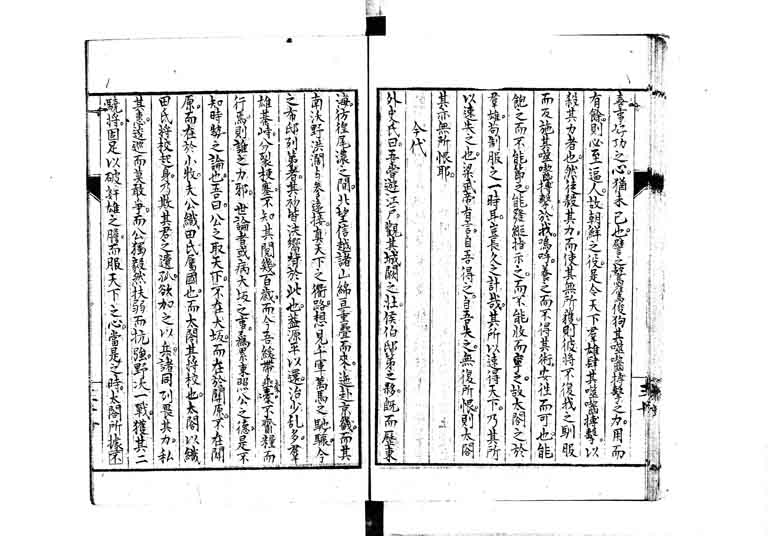 喜事好功之心。猶未已也。譬之鷙鷹俊狗其噬嚙搏擊之力。用而
有餘。則心至逼人故朝鮮之役。是令天下羣雄肆其噬嚙搏擊。以
殺其力者也。然徒殺其力。而使其無所穫。則彼將不復我之馴服
而反施其噬嚙搏擊於我。嗚呼養之而不得其術。安往而可也能
飽之而不能節之。能發縱指示之。而不能收而寧之。故太閤之於
羣雄苟制服之一時耳。豈長久之計哉。其所以速得天下。乃其所
以速失之也。梁武帝有言。自吾得之。自吾失之。無復所恨。則太閤
其亦無所恨耶。
今代
外史氏曰。吾嘗遊江戶。觀其城闕之壯。侯伯邸第之夥。既而歷東
海。彷徨尾濃之間。北望信越諸山。綿亘重疊而來。迤赴京畿。而其
南沃野洪濶。與參遠接。真天下之衝路。想見千軍萬馬之馳驟。今
之布邸列第者。其初皆決嚮背於此也。蓋源平以還。治少亂多。羣
雄基峙。分裂梗塞。不知其閱幾百歲。而今吾緩帶橐。不齎糧而
行焉。則誰之力邪。世論者或病大坂之事。為累東照公之德。是不
知時勢之論也。吾曰。公之取天下。不在大坂。而在於關原。不在關
原。而在於小牧。夫公織田氏屬國也。而太閤其將校也。太閤以織
田氏將校起身。乃欺其君之遺孤。欲加之以兵。諸同列畏其力。私
其惠。逡巡而莫敢爭。而公獨毅然扶弱而抗強。野沃一戰。獲其二
驍將。固足以破奸雄之膽。而服天下之心。當是之時。太閤所據不